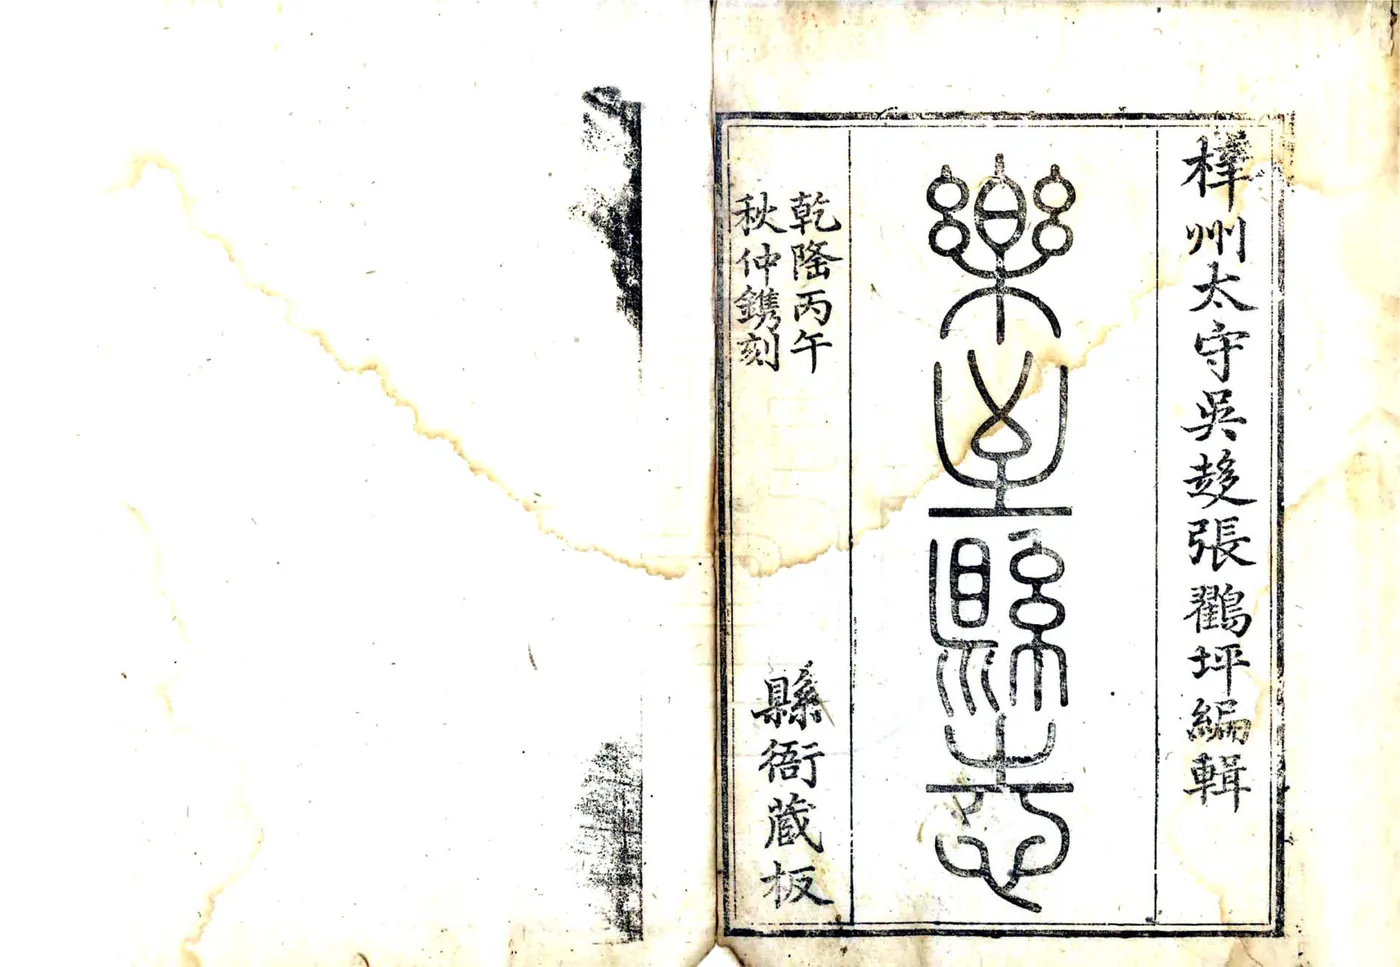 梓州太守吳趍張鶴坪編輯
樂至縣志
乾隆丙午
秋仲鐫刻
縣衙藏板